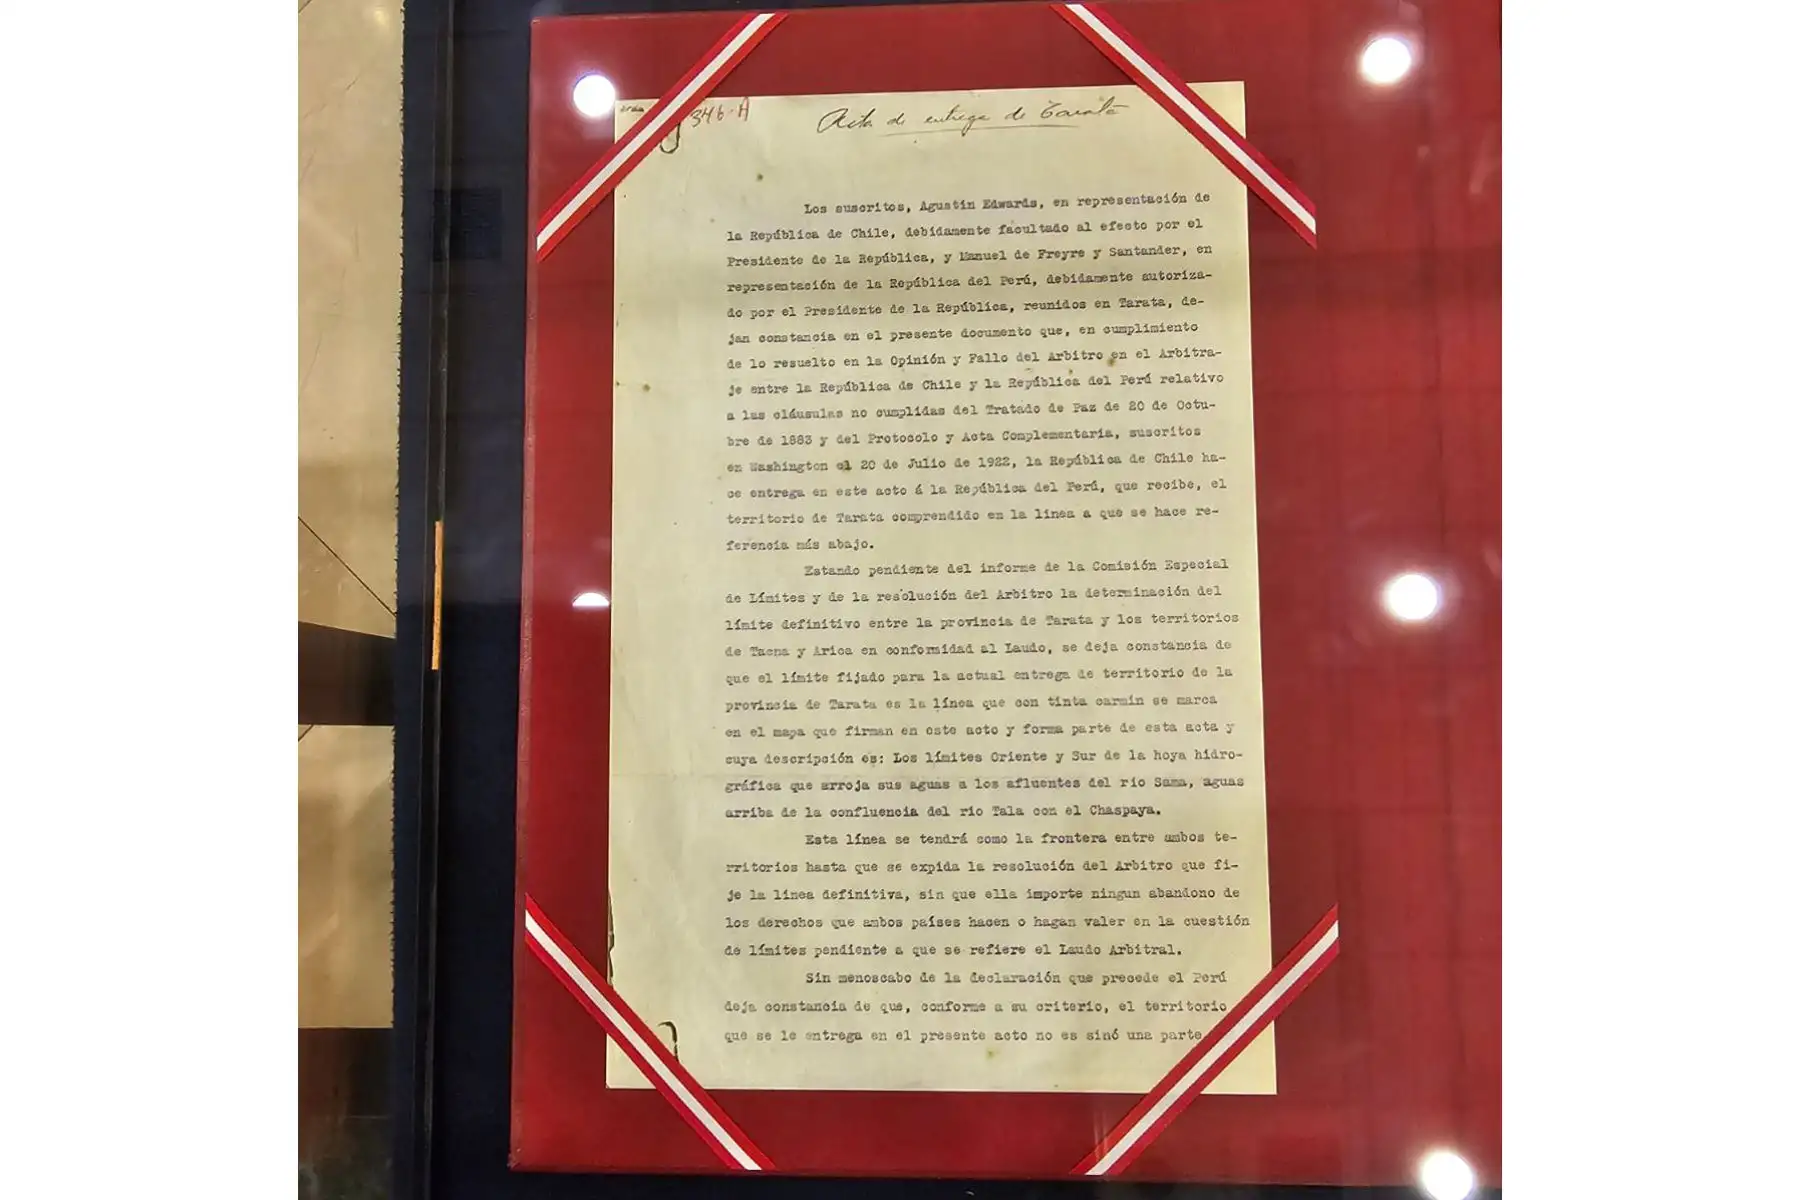 346-A
Acta de entrega de Tarata
Los suscritos, Agustín Edwards, en representación de
la República de Chile, debidamente facultado al efecto por el
Presidente de la República, y Manuel de Freyre y Santander, en
representación de la República del Perú, debidamente autoriza-
do por el Presidente de la República, reunidos en Tarata, de-
jan constancia en el presente documento que, en cumplimiento
de lo resuelto en la Opinión y Fallo del Arbitro en el Arbitra-
je entre la República de Chile y la República del Perú relativo
a las cláusulas no cumplidas del Tratado de Paz de 20 de Octu-
bre de 1883 y del Protocolo y Acta Complementaria, suscritos
en Washington el 20 de Julio de 1922, la República de Chile ha-
ce entrega en este acto á la República del Perú, que recibe, el
territorio de Tarata comprendido en la línea a que se hace re-
ferencia más abajo.
Estando pendiente del informe de la Comisión Especial
de Límites y de la resolución del Arbitro la determinación del
límite definitivo entre la provincia de Tarata y los territorios
de Tacna y Arica en conformidad al Laudo, se deja constancia de
que el límite fijado para la actual entrega de territorio de la
provincia de Tarata es la línea que con tinta carmin se marca
en el mapa que firman en este acto y forma parte de esta acta y
cuya descripción es: Los límites Oriente y Sur de la hoya hidro-
gráfica que arroja sus aguas a los afluentes del rio Sama, aguas
arriba de la confluencia del rio Tala con el Chaspaya.
Esta línea se tendrá como la frontera entre ambos te-
rritorios hasta que se expida la resolución del Arbitro que fi-
je la línea definitiva, sin que ella importe ningun abandono de
los derechos que ambos países hacen o hagan valer en la cuestión
de límites pendiente a que se refiere el Laudo Arbitral.
Sin menoscabo de la declaración que precede el Perú
deja constancia de que, conforme a su criterio, el territorio
que se le entrega en el presente acto no es sinó una parte